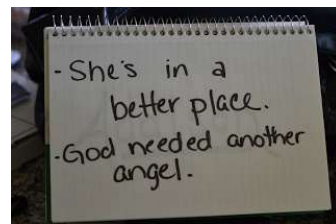 - She's in a
better place.
- God needed another
angel.